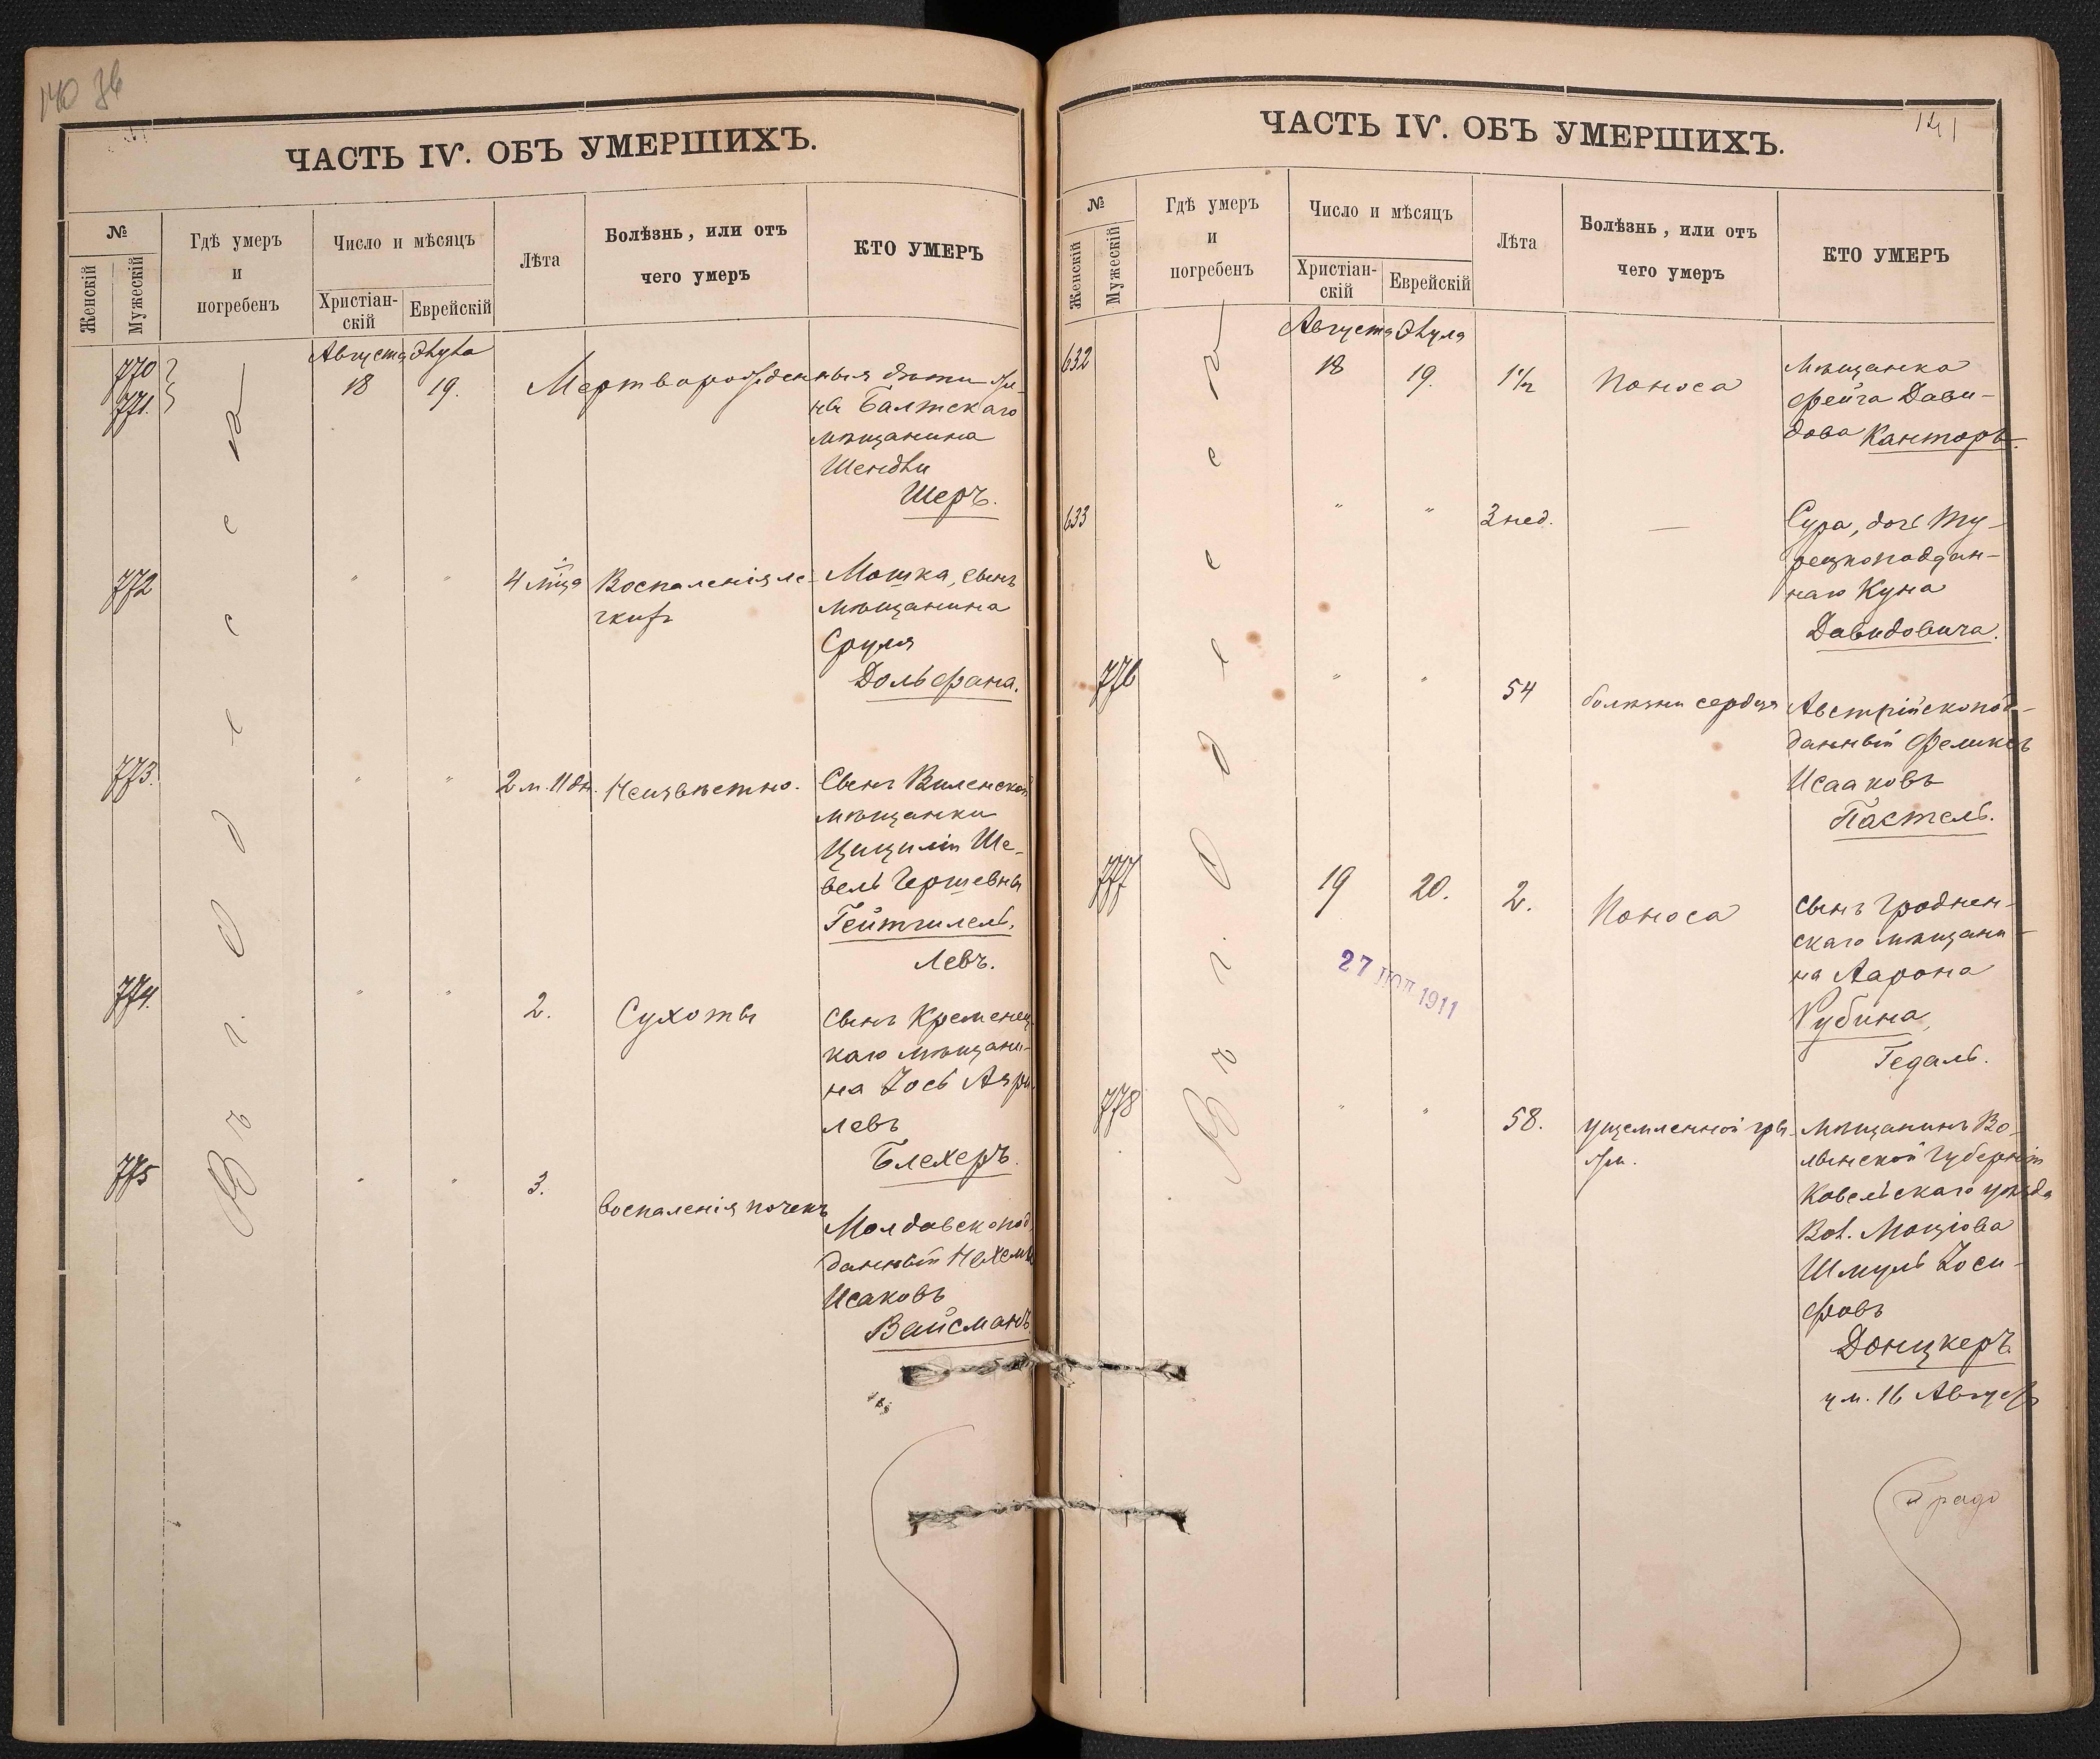 140
ЧАСТЬ IV. ОБЪ УМЕРШИХЪ.
№
Женскій
Мужескій
Гдѣ умеръ
и
погребенъ
Число и мѣсяцъ
Христіан-
скій
Еврейскій
Лѣта
Болѣзнь, или отъ
чего умеръ
КТО УМЕРЪ
Въ г. Одессѣ
Августа
770
771.
18
19.
Мертворожденныя дѣти же-
ны Балтскаго
мѣщанина
Шендли
Шеръ.
772
"
"
4 мѣца
Воспаленія ле-
гкихъ
Мошка, сынъ
мѣщанина
Сруля
Дольфана.
773.
"
"
2 м. 11 дн.
Неизвѣстно.
Сынъ Виленской
мѣщанки
Цициліи Ше-
вель Гершевны
Гейтгилель.
Левъ.
774.
"
"
2.
Сухоты
Сынъ Кременец-
каго мѣщани-
на Іось Азри-
левъ
Блехеръ.
775
"
"
3.
воспаленія почекъ
Молдавскопод
данный Нахемья
Исаковъ
Вайсманъ
ЧАСТЬ IV. ОБЪ УМЕРШИХЪ.
141
№
Женскій
Мужескій
Гдѣ умеръ
и
погребенъ
Число и мѣсяцъ
Христіан-
скій
Еврейскій
Лѣта
Болѣзнь, или отъ
чего умеръ
КТО УМЕРЪ
Въ г. Одессѣ
Августа Элуля
632
18
19.
1 1/2
Поноса
Мѣщанка
Фейга Дави-
дова Канторъ.
633
"
"
3 нед.
—
Сура, дочь Ту-
рецкоподдан-
наго Куна
Давидовича.
776
"
"
54
болѣзни сердца
Австрійскопод-
данный Феликсъ
Исааковъ
Пастель.
777
19
20.
2.
Поноса
Сынъ Гроднен-
скаго мѣщани-
на Аарона
Рубина,
Гедаль.
27 ІЮЛ 1911
778
"
"
58.
ущемленной гры-
жи.
Мѣщанинъ Во-
лынской Губерніи
Ковельскаго уѣзда
Вол. Маціова
Шмуль Іоси-
фовъ
Донцкеръ.
ум. 16 Августа